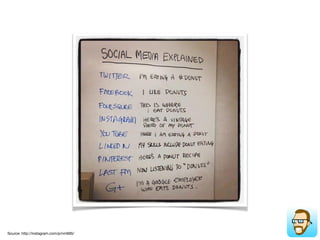 SOCIAL MEDIA EXPLAINED
TWITTER I'M EATING A #DONUT
FACEBOOK I LIKE DONUTS
FOURSQUARE THIS IS WHERE
I EAT DONUTS
INSTAGRAM HERE'S A VINTAGE
PHOTO OF MY DONUT
YOU TUBE HERE I AM EATING A DONUT
LINKED IN MY SKILLS INCLUDE DONUT EATING
PINTEREST HERE'S A DONUT RECIPE
LAST FM NOW LISTENING TO "DONUTS"
G+ I'M A GOOGLE EMPLOYEE
WHO EATS DONUTS.
Source: http://instagram.com/p/nm695/